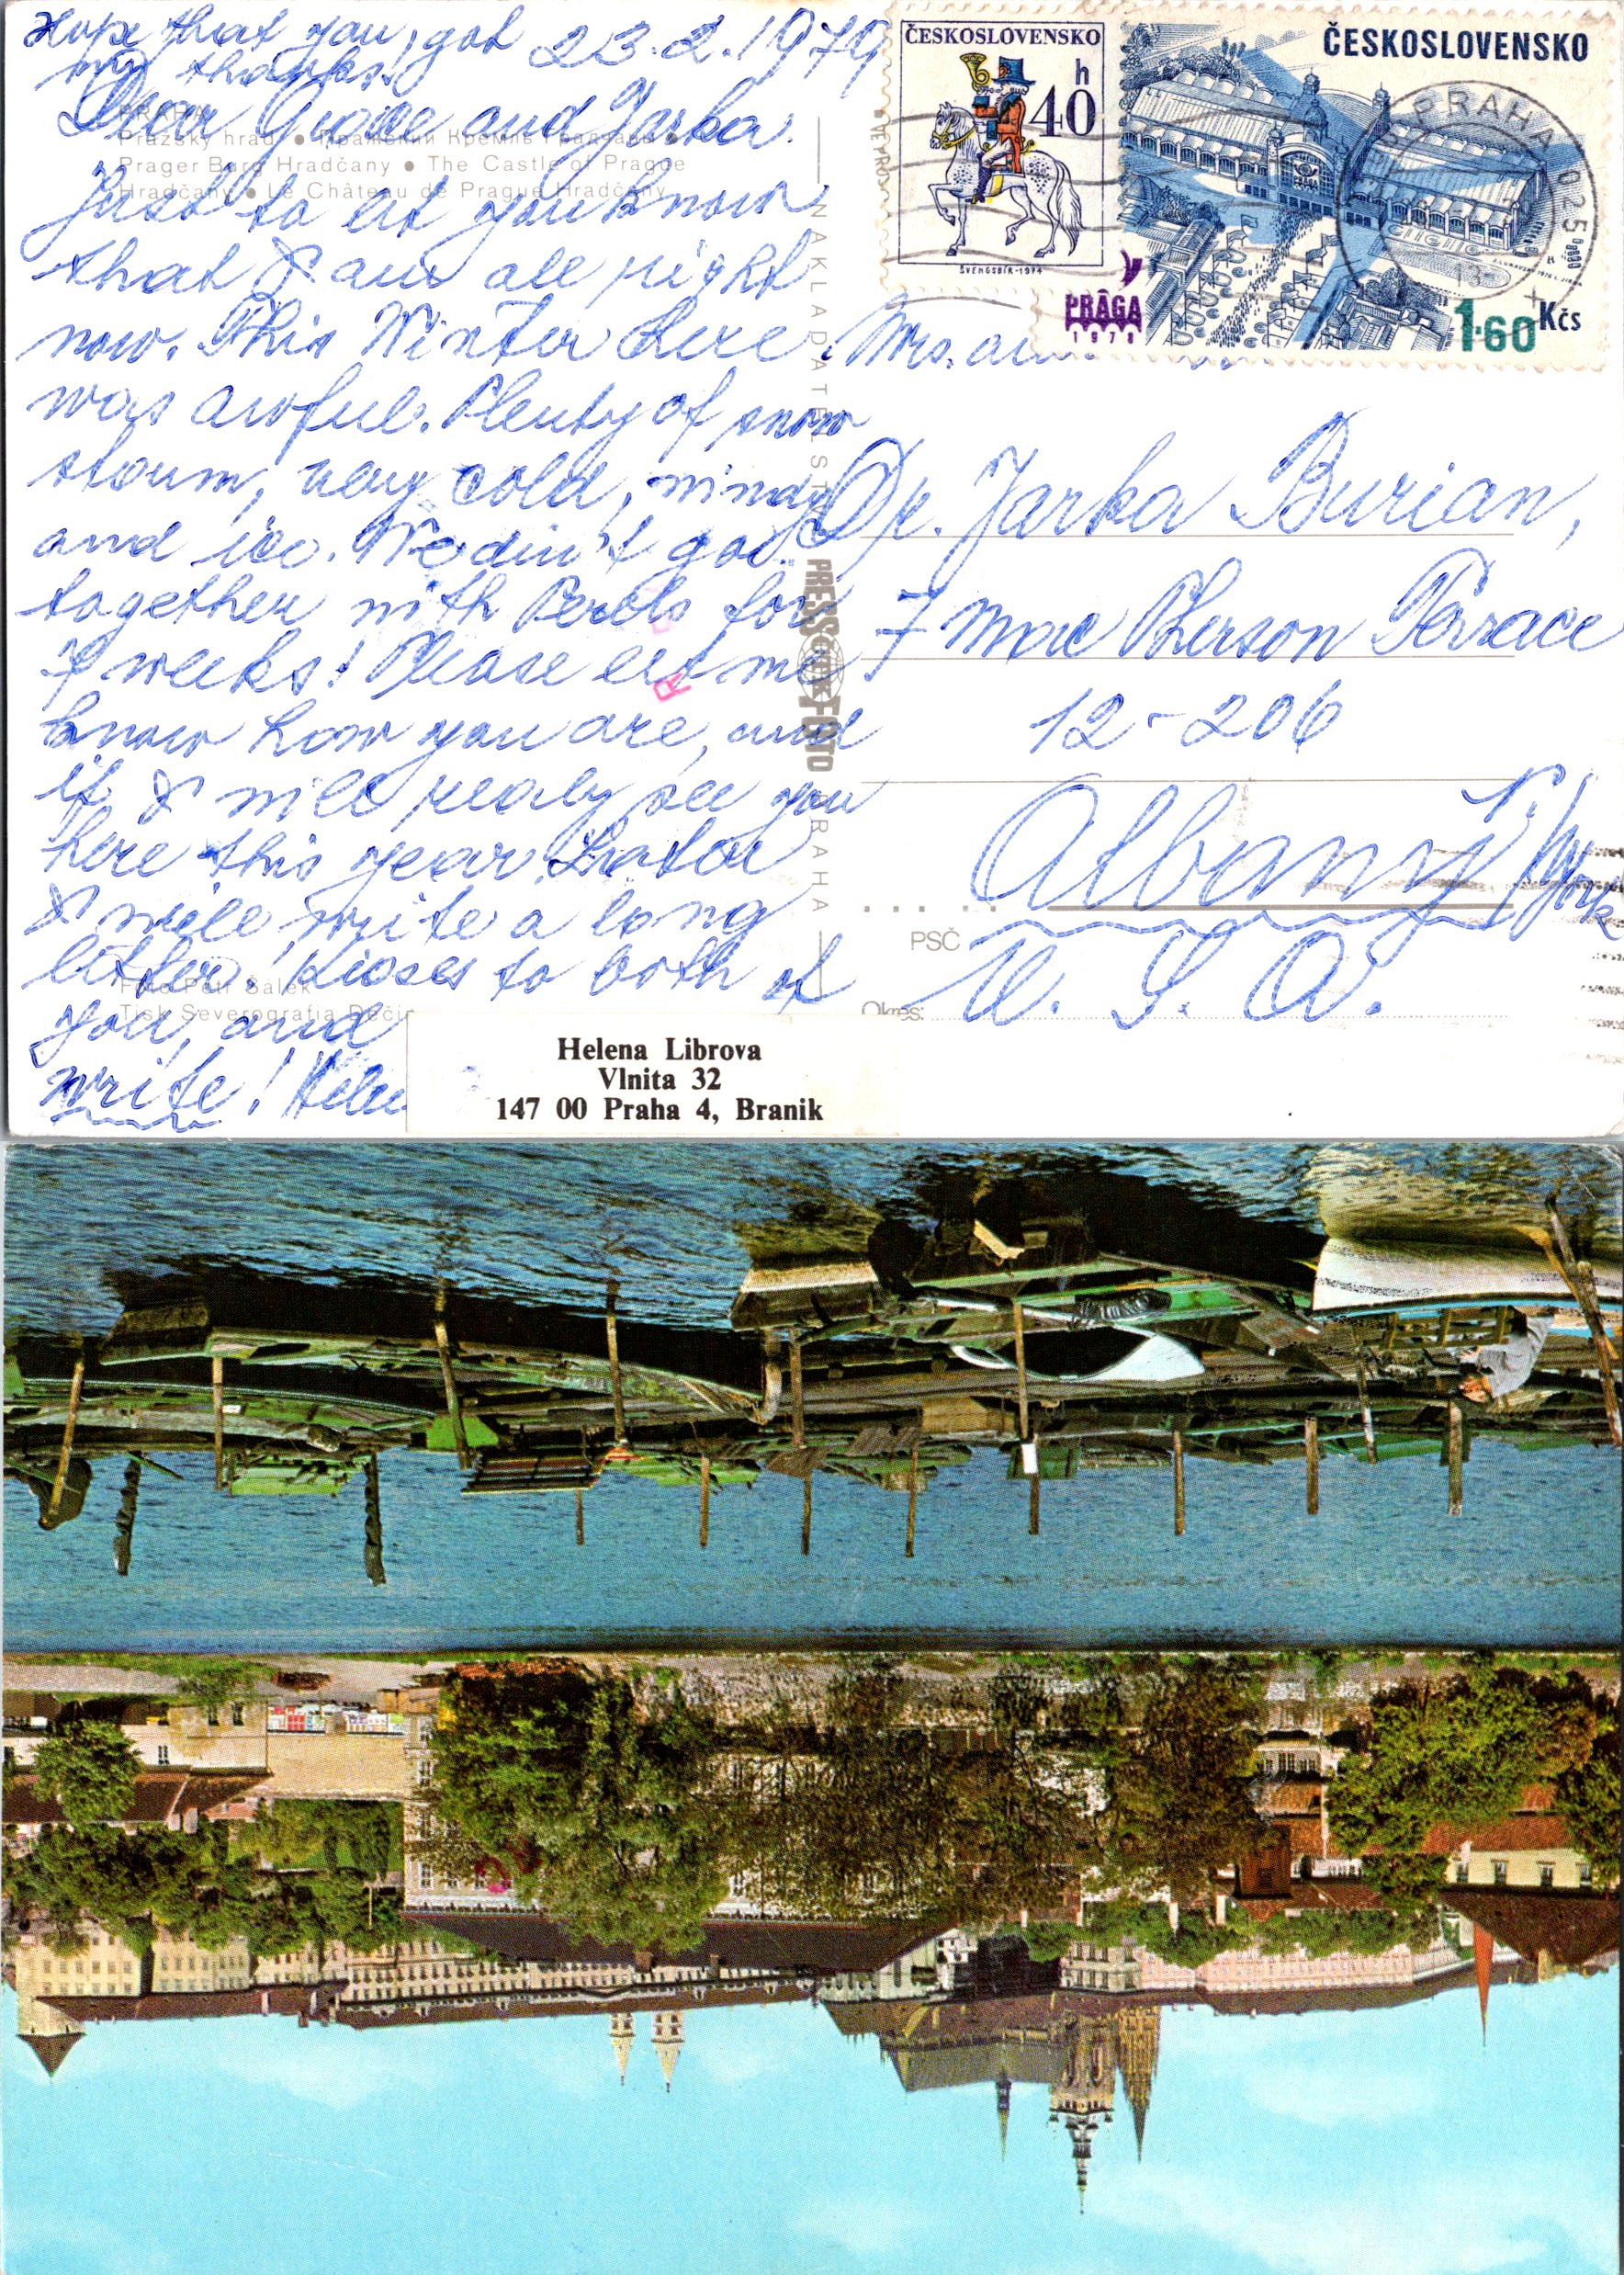 Hope that you, got 23.2.1979
my thanks!
Dear Grace and Jarka.
Just to let you know
that I am all right
now. This Winter here
was awful. Plenty of snow
storm, very cold, windy
and ice. We din't got
together with Perols for
7 weeks! Please let me
know how you are, and
if I will realy see you
here this year. Later
I will write a long
letter. Kisses to both of
you, and
write! Helen
PRAHA
Pražský hrad • Пражский Кремль Градчаны •
Prager Burg Hradčany • The Castle of Prague
Hradčany • Le Château de Prague Hradčany
Foto Petr Šálek
Tisk Severografia Děčín
NAKLADATELSTVÍ
PRESSFOTO
PRAHA
Helena Librova
Vlnita 32
147 00 Praha 4, Branik
ČESKOSLOVENSKO
40 h
ŠVENGSBÍR-1974
ČESKOSLOVENSKO
PRAGA
1978
1.60 Kčs
PRAHA 025
Mrs. and
Dr. Jarka Burian,
7 Mac Pherson Terrace
12-206
Albany N. York
PSČ
U. S. A.
Okres: